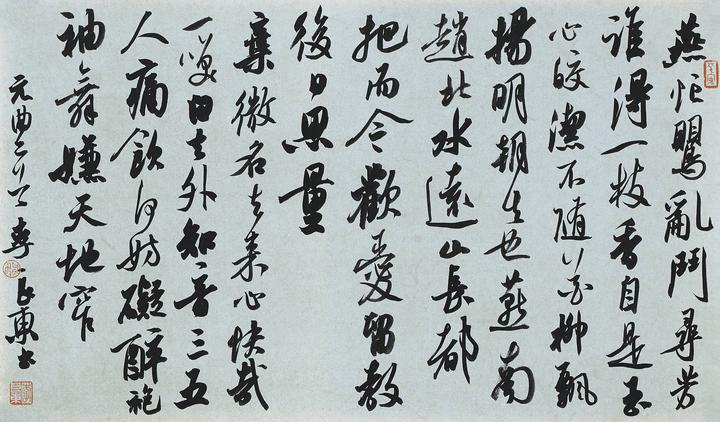 燕忙鶯亂鬥尋芳
誰得一枝香自是玉
心皎潔不隨花柳飄
揚明朝去也燕南
趙北水遠山長都
把而今歡愛留教
後日思量
棄微名去來心快哉
一笑白雲外知音三五
人痛飲何妨礙醉袍
袖舞嫌天地窄
元曲二首李良東書